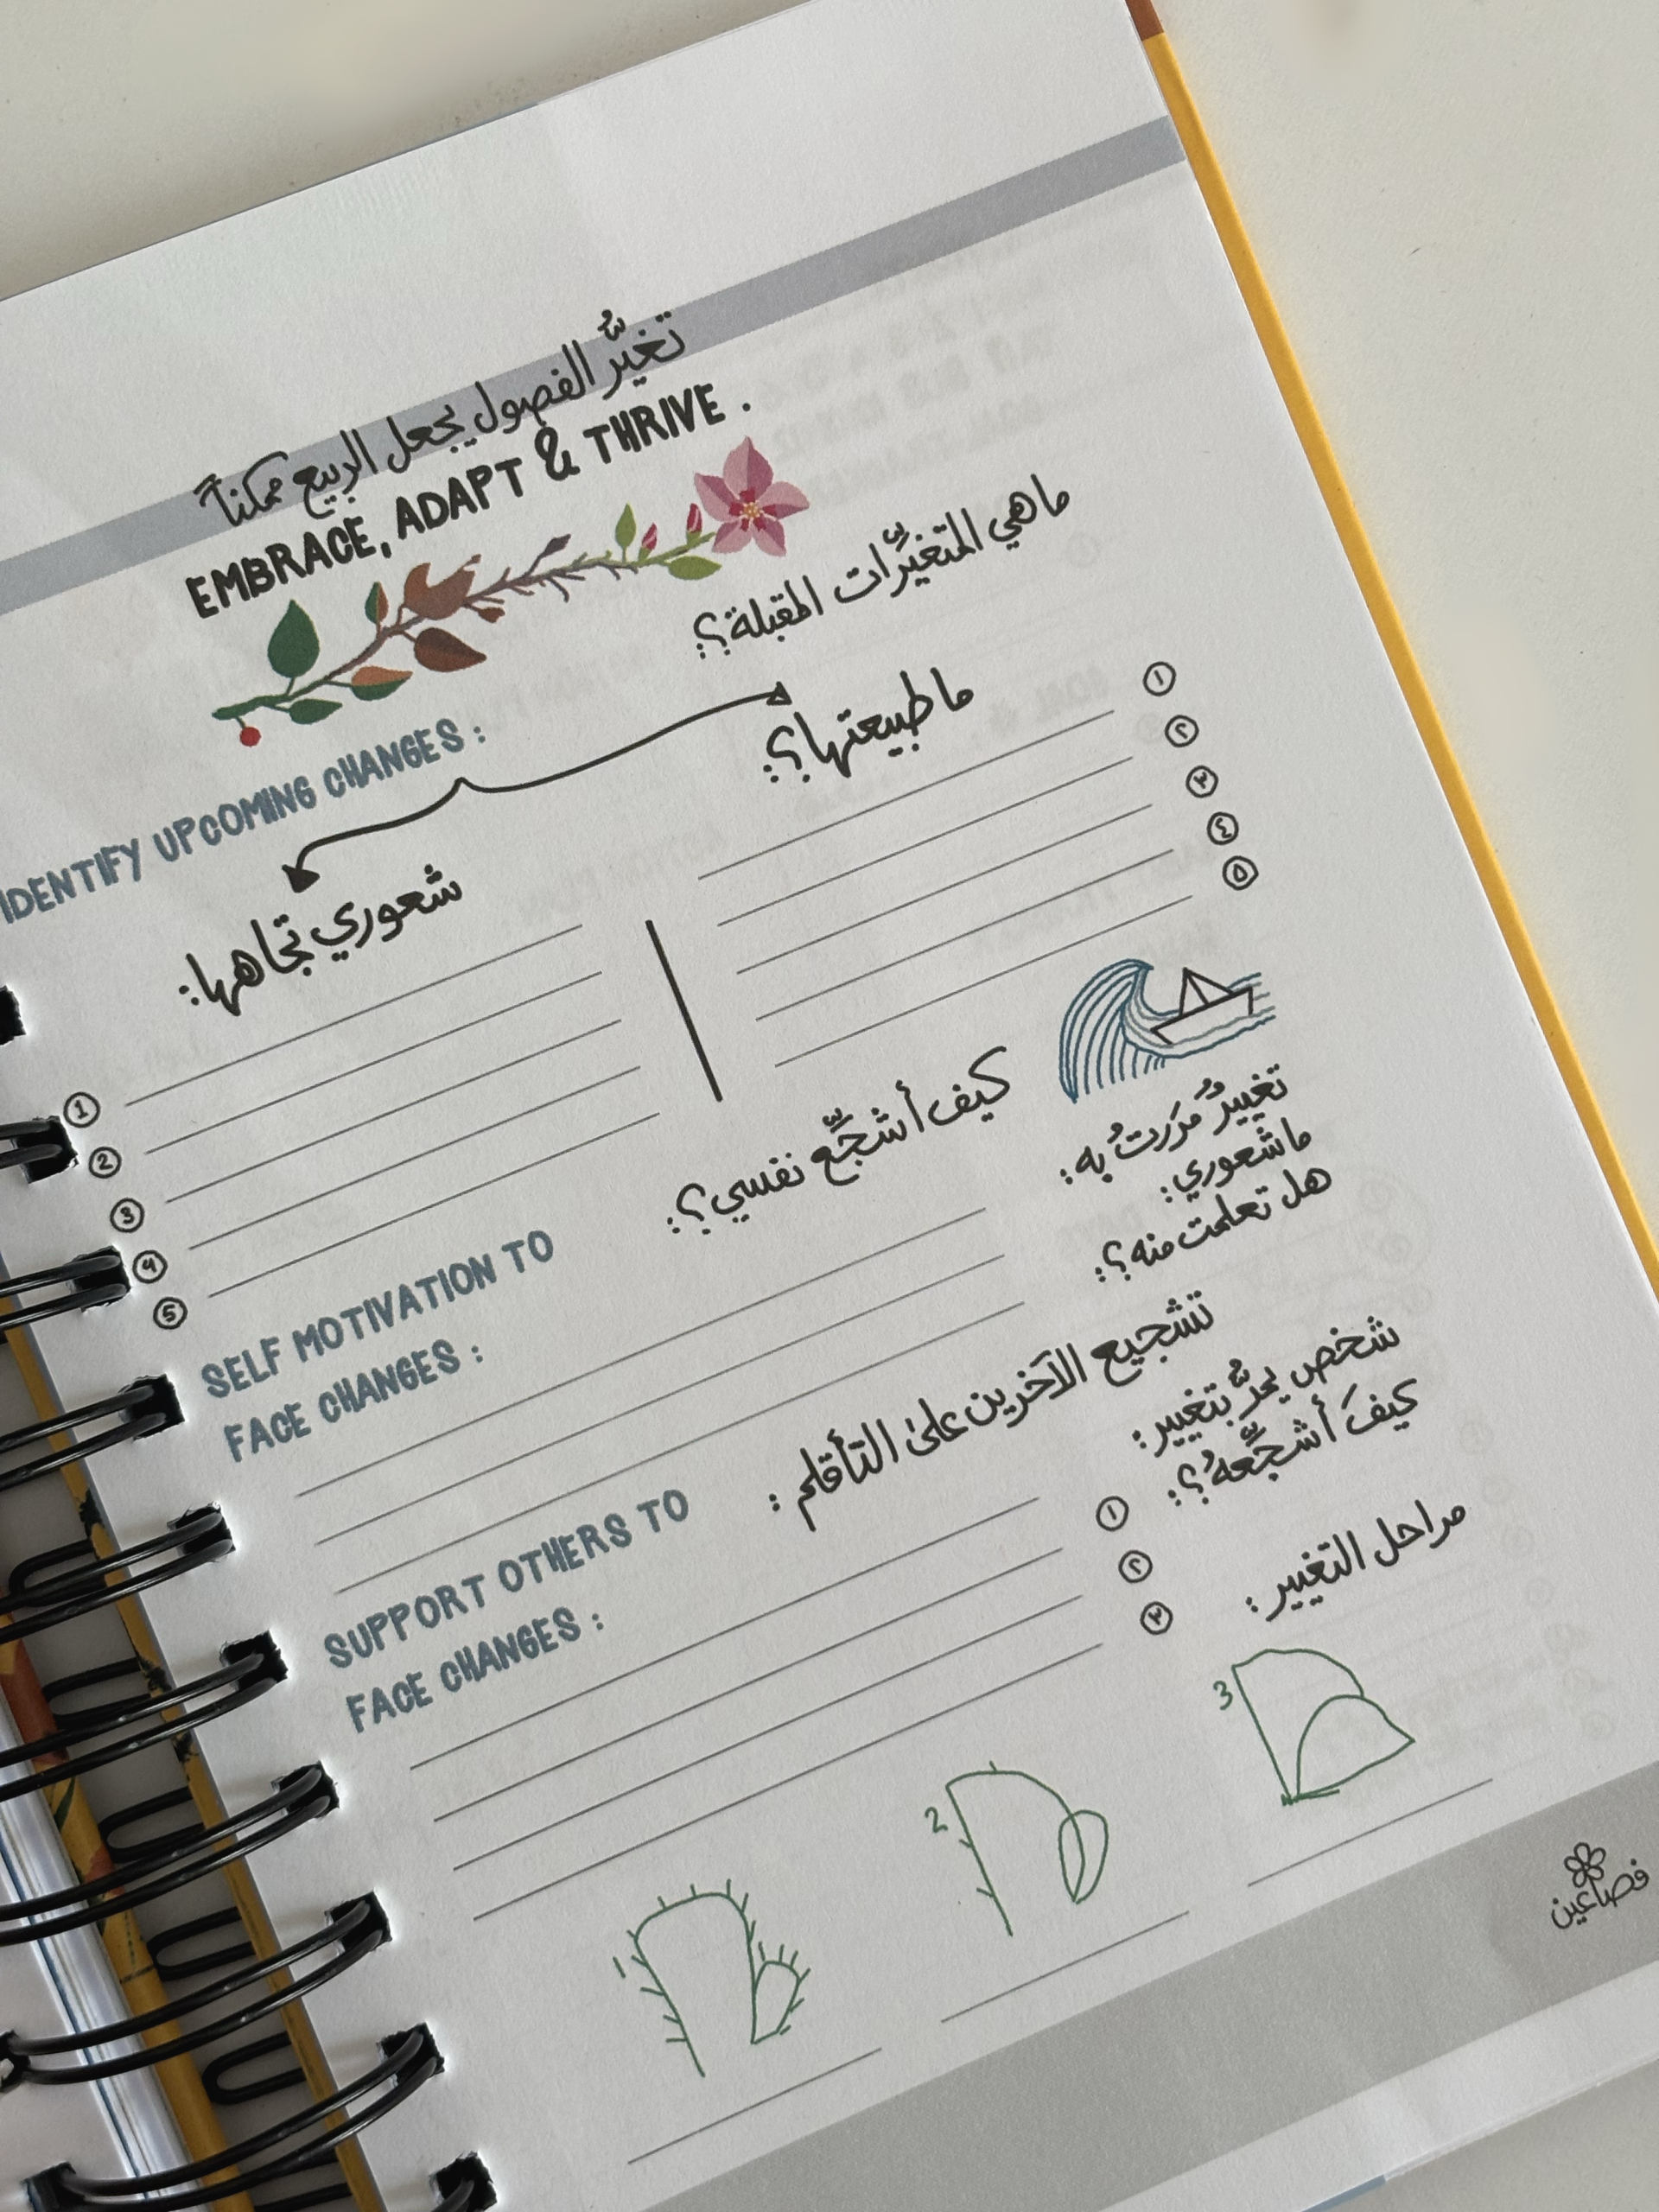 تغيُّر الفصول يجعل الربيع ممكناً
EMBRACE, ADAPT & THRIVE .
ما هي المتغيِّرات المقبلة؟:
IDENTIFY UPCOMING CHANGES :
ما طبيعتها؟:
١
٢
٣
٤
٥
شعوري تجاهها:
1
2
3
4
5
كيف أشجِّع نفسي؟:
تغييرٌ مَرَرتُ به:
ما شعوري:
هل تعلمت منه؟:
SELF MOTIVATION TO
FACE CHANGES :
تشجيع الآخرين على التأقلم :
شخص يمرُّ بتغيير:
كيفَ أشجِّعهُ؟:
SUPPORT OTHERS TO
FACE CHANGES :
١
٢
٣
مراحل التغيير :
1
2
3
فصاعين